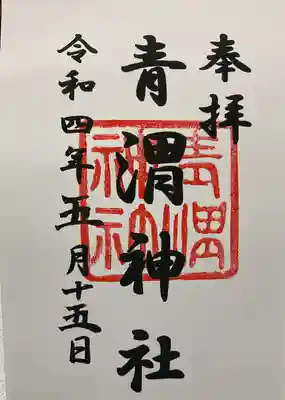 奉拝
青渭神社
青渭神社
令和四年五月十五日